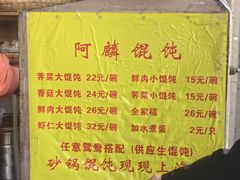 阿麟馄饨
荠菜大馄饨 22元/碗 鲜肉小馄饨 15元/碗
香菇大馄饨 24元/碗 荠菜小馄饨 15元/碗
鲜肉大馄饨 26元/碗 全家福 26元/碗
虾仁大馄饨 32元/碗 加水煮蛋 2元/只
任意鸳鸯搭配（供应生馄饨）
砂锅馄饨现现上